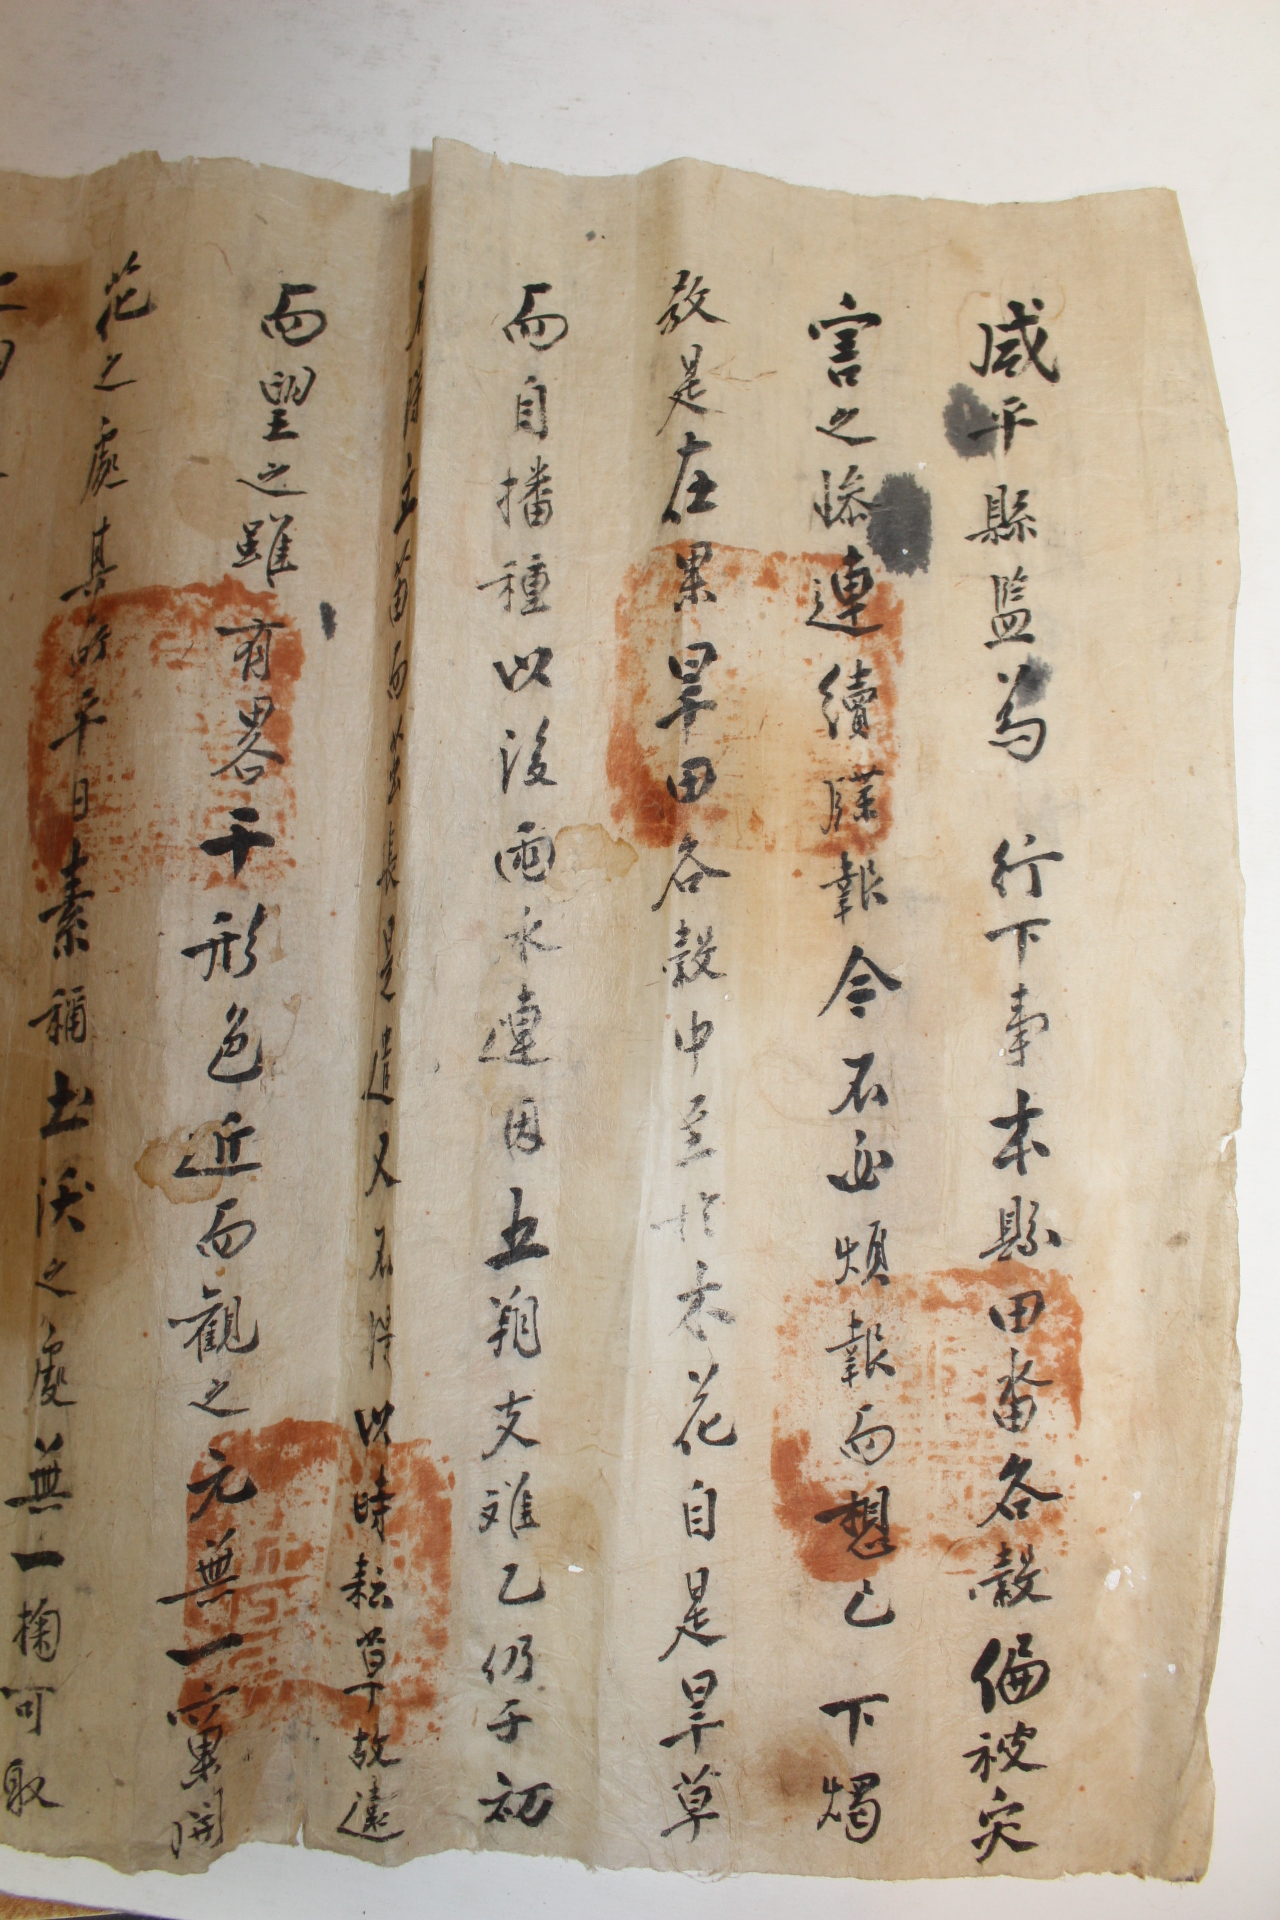 咸平縣監爲 行下事本縣田畓各穀偏被灾
害之 連續牒報今不必煩報而想已 下燭
敎是在果旱田各穀中至於木花自是旱草
而自播種以後雨水連因五朔支離乙仍于初
立苗而 長是遣又不得以時耘草故遠
而望之雖有畧干形色近而觀之元無一窠開
花之處其所平日素稱土沃之處無一掬可取